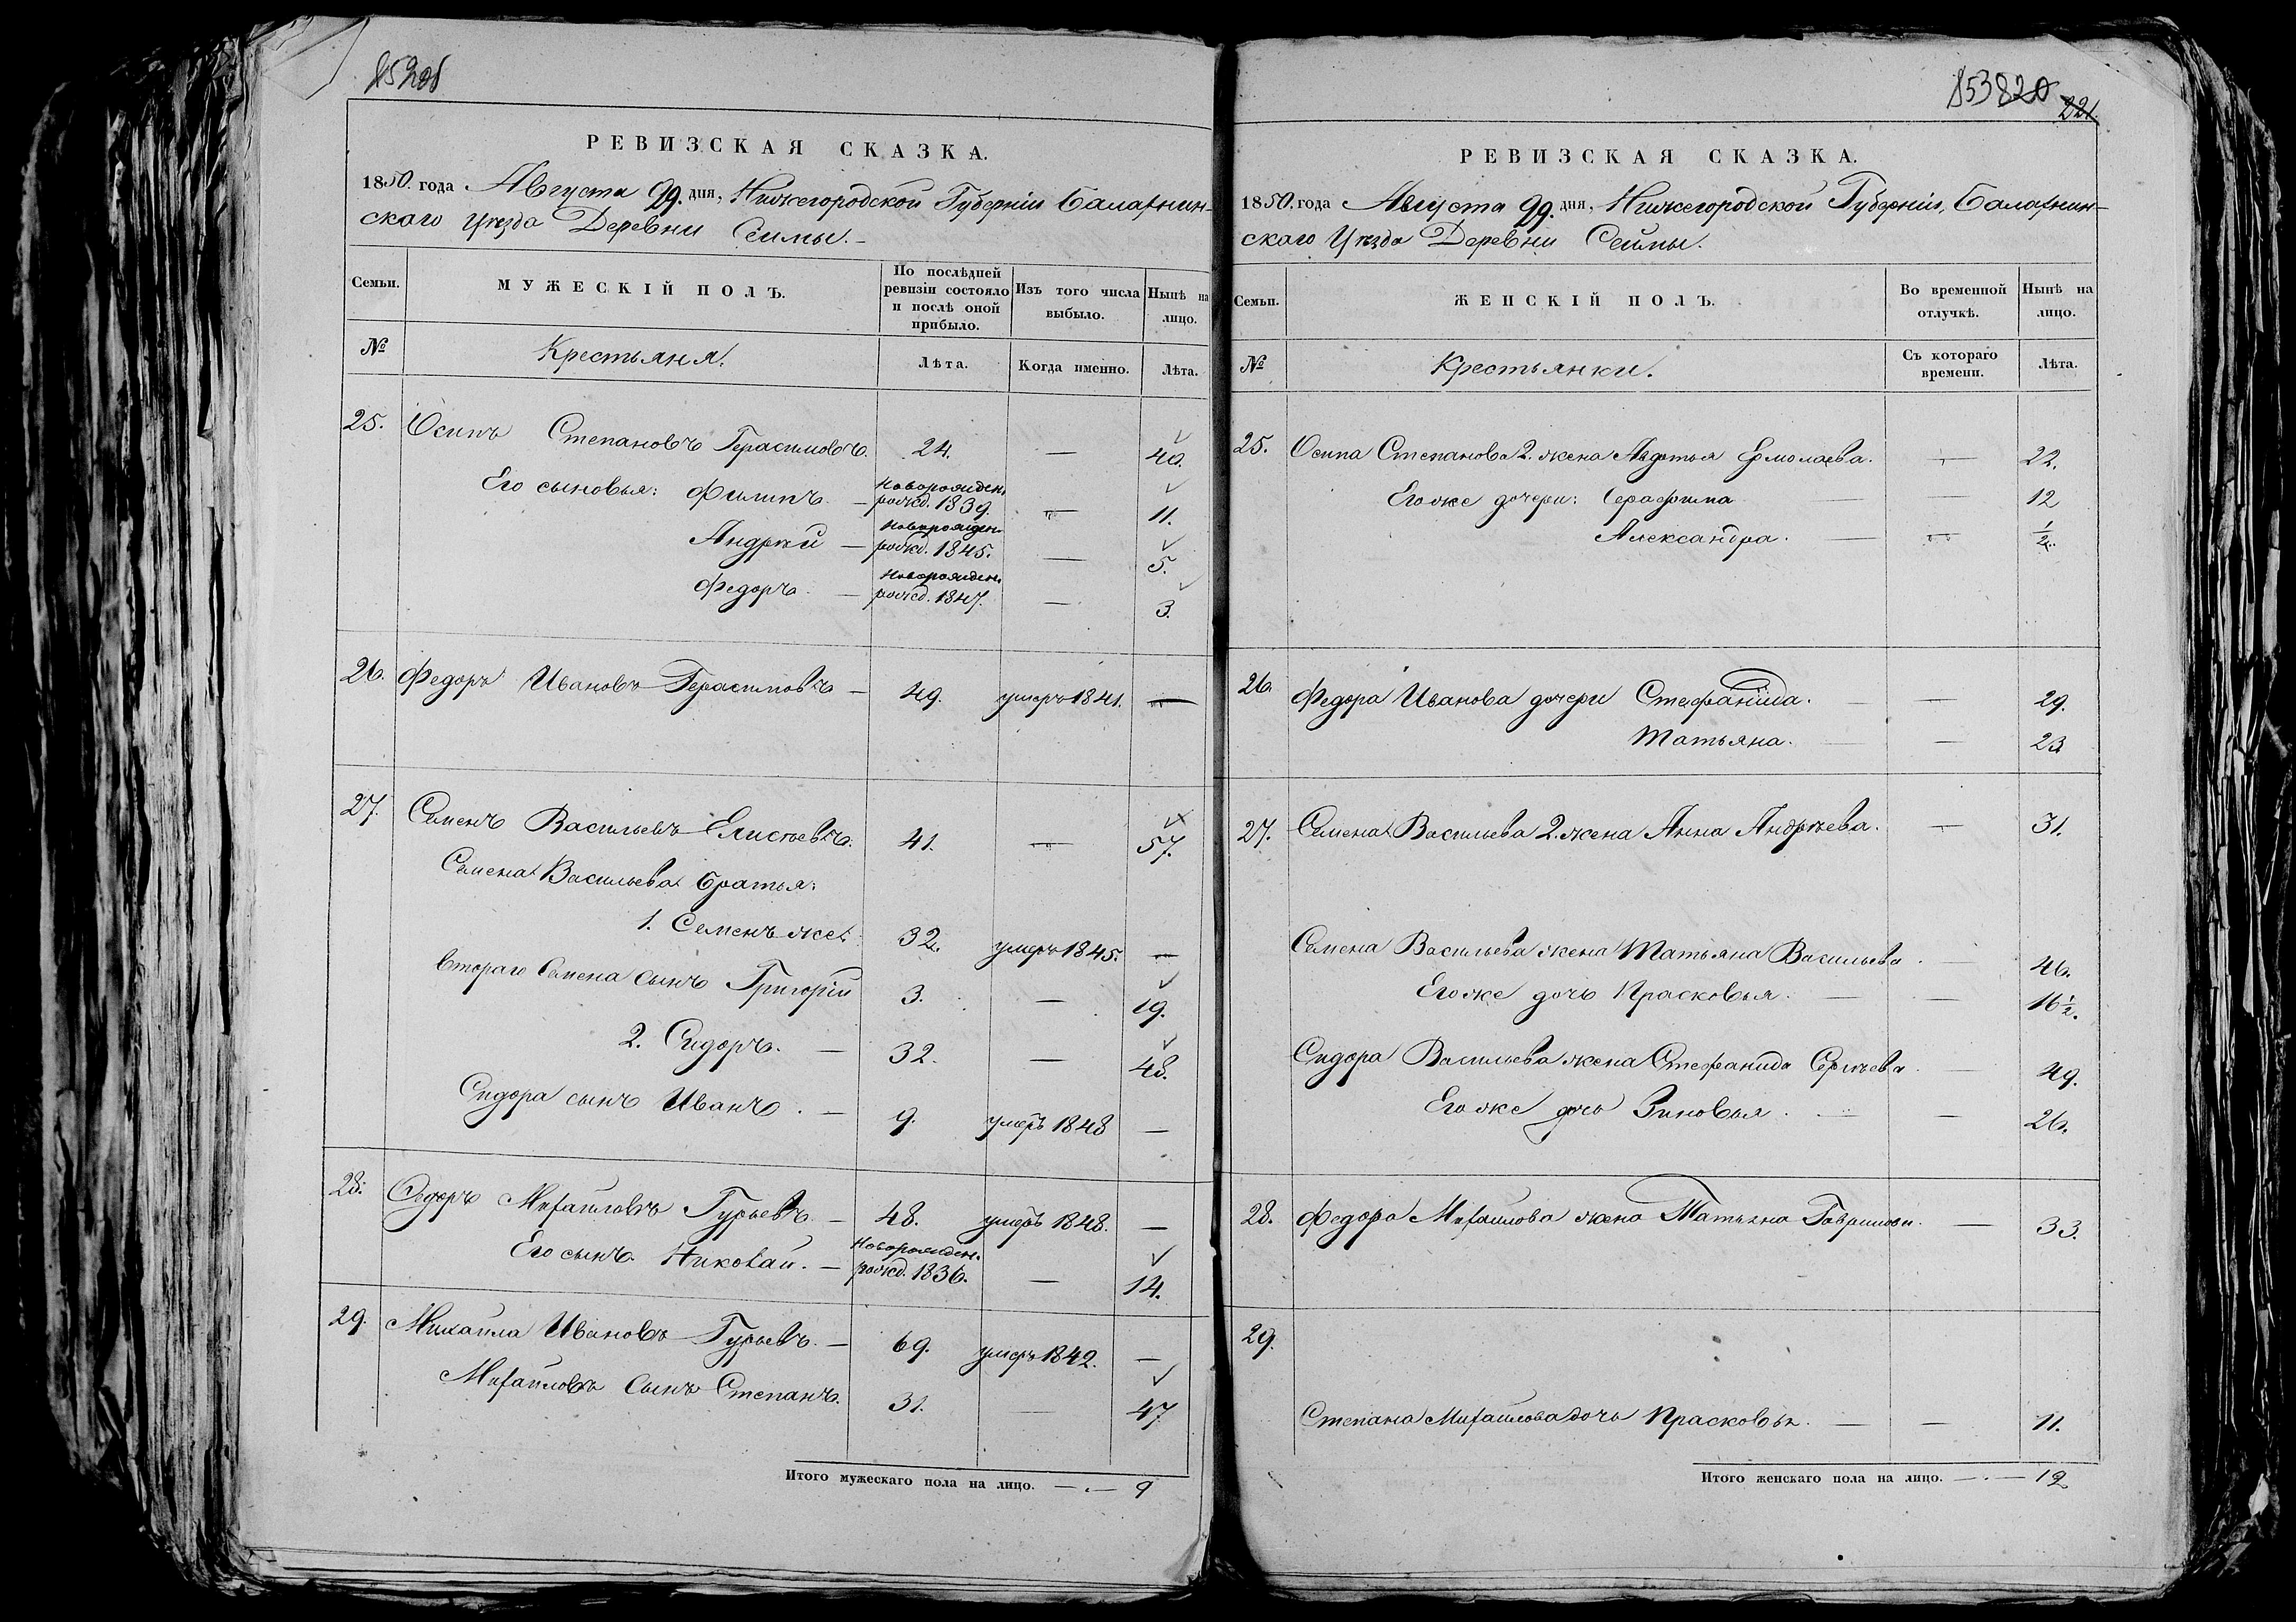 РЕВИЗСКАЯ СКАЗКА.
1850. года Августа 29. дня, Нижегородской Губерніи Балахнин-
скаго Уѣзда Деревни Сеймы.
Семьи.
МУЖЕСКІЙ ПОЛЪ.
По послѣдней ревизіи состояло и послѣ оной прибыло.
Изъ того числа выбыло.
Нынѣ на лицо.
№
Крестьяня.
Лѣта.
Когда именно.
Лѣта.
25. Осипъ Степановъ Герасимовъ. 24. — 40.
Его сыновья: Филипъ. — Новорожден. рожд. 1839. — 11.
Андрей — Новорожден. рожд. 1845. — 5.
Федоръ. — Новорожден. рожд. 1847. — 3.
26. Федоръ Ивановъ Герасимовъ — 49. умеръ 1841. —
27. Семенъ Васильевъ Елисѣевъ. 41. — 57.
Семена Васильева братья:
1. Семенъ же. 32. умеръ 1845. —
Втораго Семена сынъ Григорій 3. — 19.
2. Сидоръ. — 32. — 48.
Сидора сынъ Иванъ. — 9. умеръ 1848 —
28. Федоръ Михайловъ Гурьевъ. — 48. умеръ 1848. —
Его сынъ Николай. — Новорожден. рожд. 1836. — 14.
29. Михайла Ивановъ Гурьевъ. — 69. умеръ 1842. —
Михайловъ Сынъ Степанъ. 31. — 47
Итого мужескаго пола на лицо. — 9
853820
221.
РЕВИЗСКАЯ СКАЗКА.
1850. года Августа 29. дня, Нижегородской Губерніи, Балахнин-
скаго Уѣзда Деревни Сеймы.
Семьи.
ЖЕНСКІЙ ПОЛЪ.
Во временной отлучкѣ.
Нынѣ на лицо.
№
Крестьянки.
Съ котораго времени.
Лѣта.
25. Осипа Степанова 2. жена Авдотья Ермолаева. — 22.
Его же дочери: Серафима — 12
Александра. — 1/2.
26. Федора Иванова дочери Стефанида. — 29.
Татьяна. — 23
27. Семена Васильева 2. жена Анна Андрѣева. — 31.
Семена Васильева жена Татьяна Васильева. — 46.
Его же дочь Прасковья. — 16 1/2.
Сидора Васильева жена Стефанида Сергѣева. — 49.
Его же дочь Зиновья. — 26.
28. Федора Михайлова жена Татьяна Гаврилова. — 33.
29.
Степана Михайлова дочь Прасковья. — 11.
Итого женскаго пола на лицо. — 12